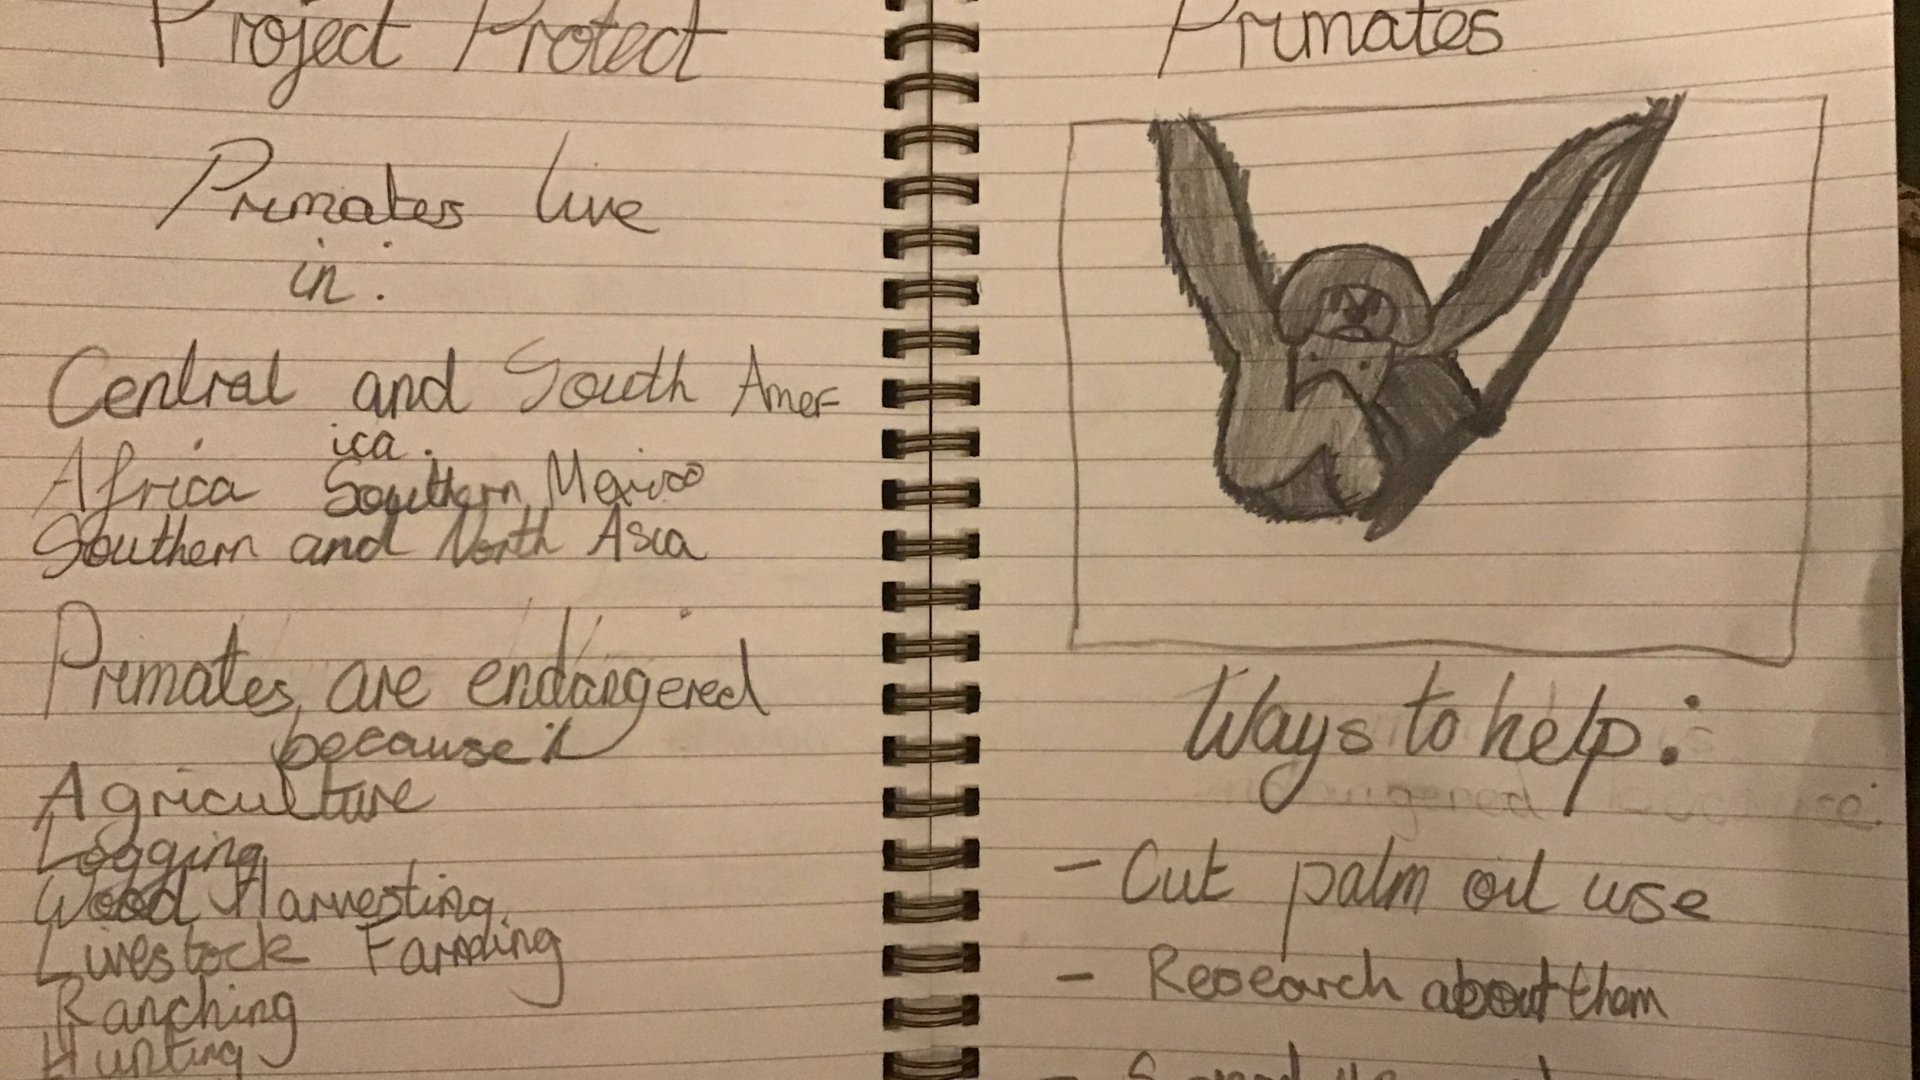 Project Protect
Primates live
in:
Central and South Amer
ica.
Africa Southern Mexico
Southern and North Asia
Primates are endangered
because:
Agriculture
Logging
Wood Harvesting
Livestock Farming
Ranching
Hunting
Primates
Ways to help:
- Cut palm oil use
- Research about them